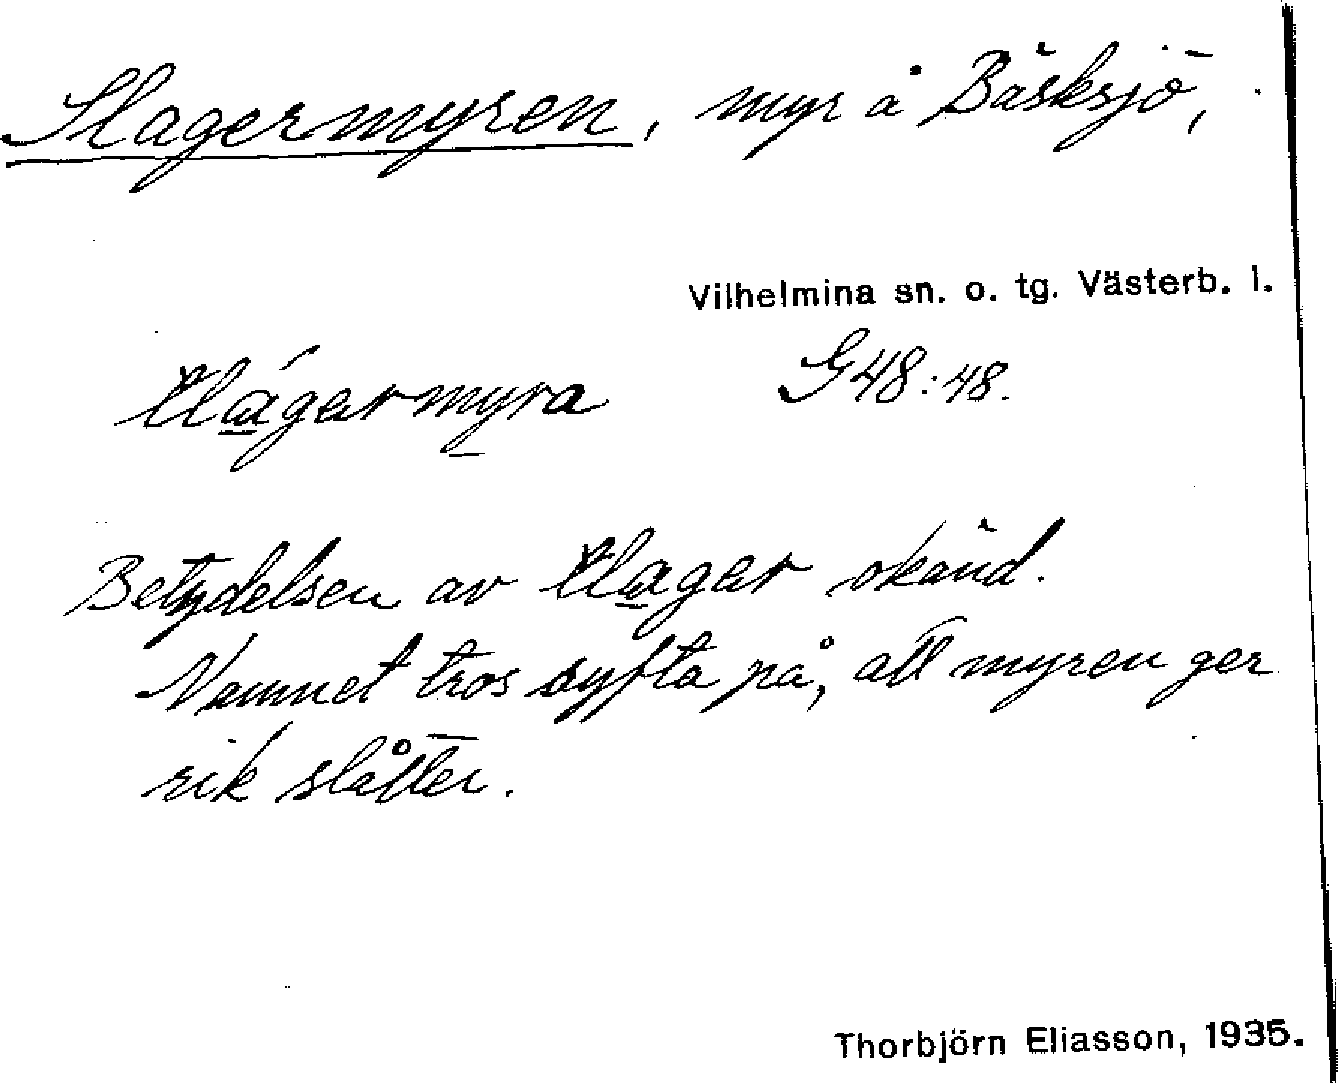 Slagermyren, myr å Bäsksjö,
Vilhelmina sn. o. tg. Västerb. l.
G48:48.
Betydelsen av okänd.
Namnet tros syfta på, att myren ger
rik slåtter.
Thorbjörn Eliasson, 1935.